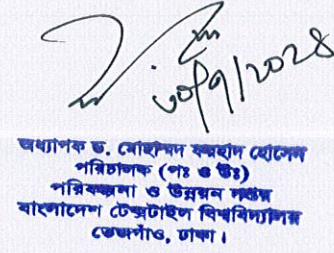 ৩০/৭/২০২৪
অধ্যাপক ড. মোহাম্মদ ফরহাদ হোসেন
পরিচালক (পঃ ও উঃ)
পরিকল্পনা ও উন্নয়ন দপ্তর
বাংলাদেশ টেক্সটাইল বিশ্ববিদ্যালয়
তেজগাঁও, ঢাকা।